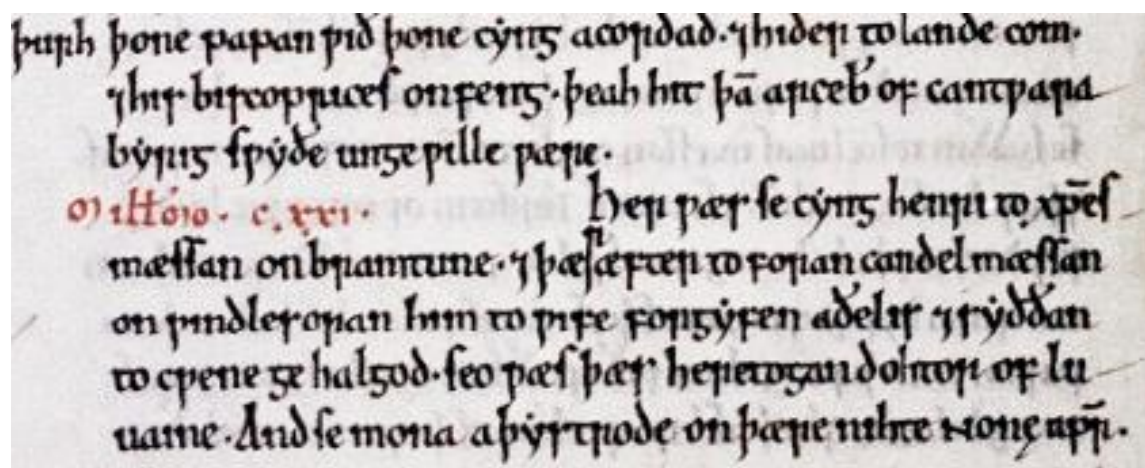 þurh þone papan ƿið þone cẏng acordad. ⁊ hider to lande com.
⁊ his biscoprices onfeng. þeah hit þā arceƀ of cantƿara
bẏrig sƿẏðe ungeƿille ƿære.
Mill̄o. c.xxi. Her ƿæs se cẏng henri to xp̄es
mæssan on bramtune. ⁊ þæs æfter to foran candelmæssan
on ƿindlesoran him to ƿife forgẏfen aðelis ⁊ sẏððan
to cƿene ge halgod. seo ƿæs þæs heretogan dohtor of lu
uaine. And se mona aþẏstrode on þære nihte Nonę apr̄.